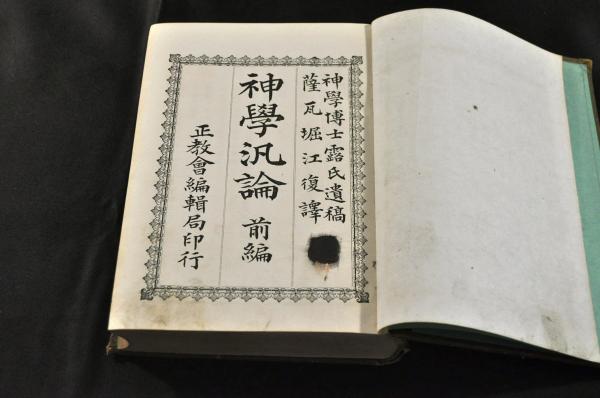 神學博士露氏遺稿
薩瓦堀江復譯
神學汎論 前編
正教會編輯局印行